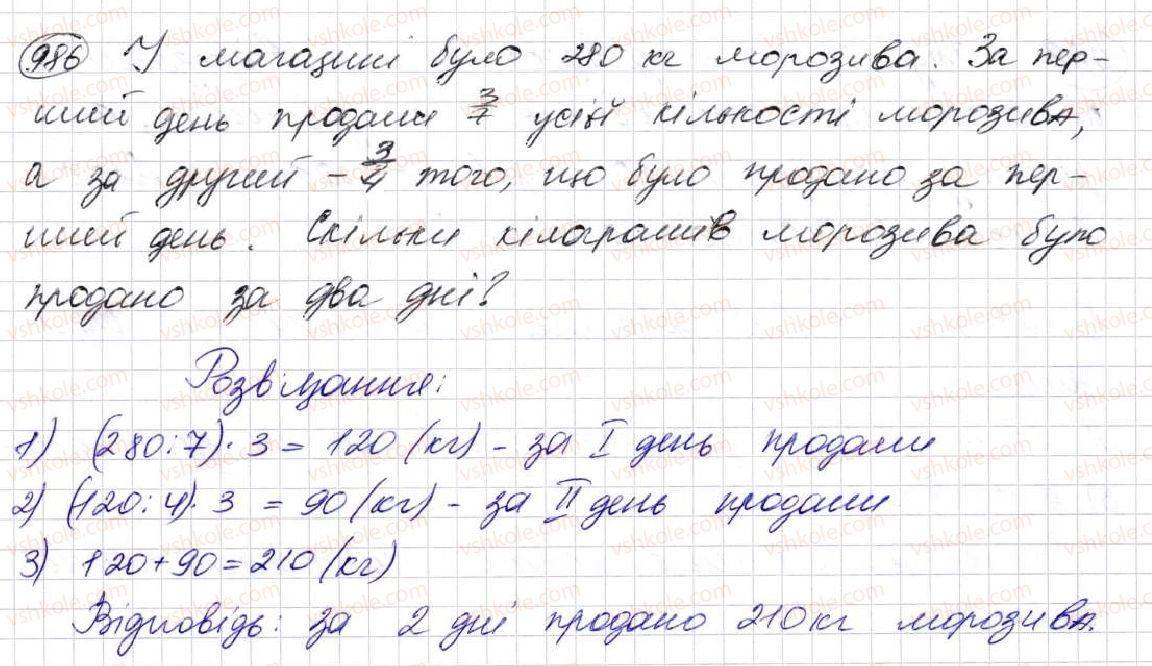 986 У магазині було 280 кг морозива. За пер-
ший день продали 3/7 усієї кількості морозива,
а за другий – 3/4 того, що було продано за пер-
ший день. Скільки кілограмів морозива було
продано за два дні?
Розв'язання:
1) (280:7)·3 = 120 (кг) – за I день продали
2) (120:4)·3 = 90 (кг) – за II день продали
3) 120+90=210 (кг)
Відповідь: за 2 дні продано 210 кг морозива.